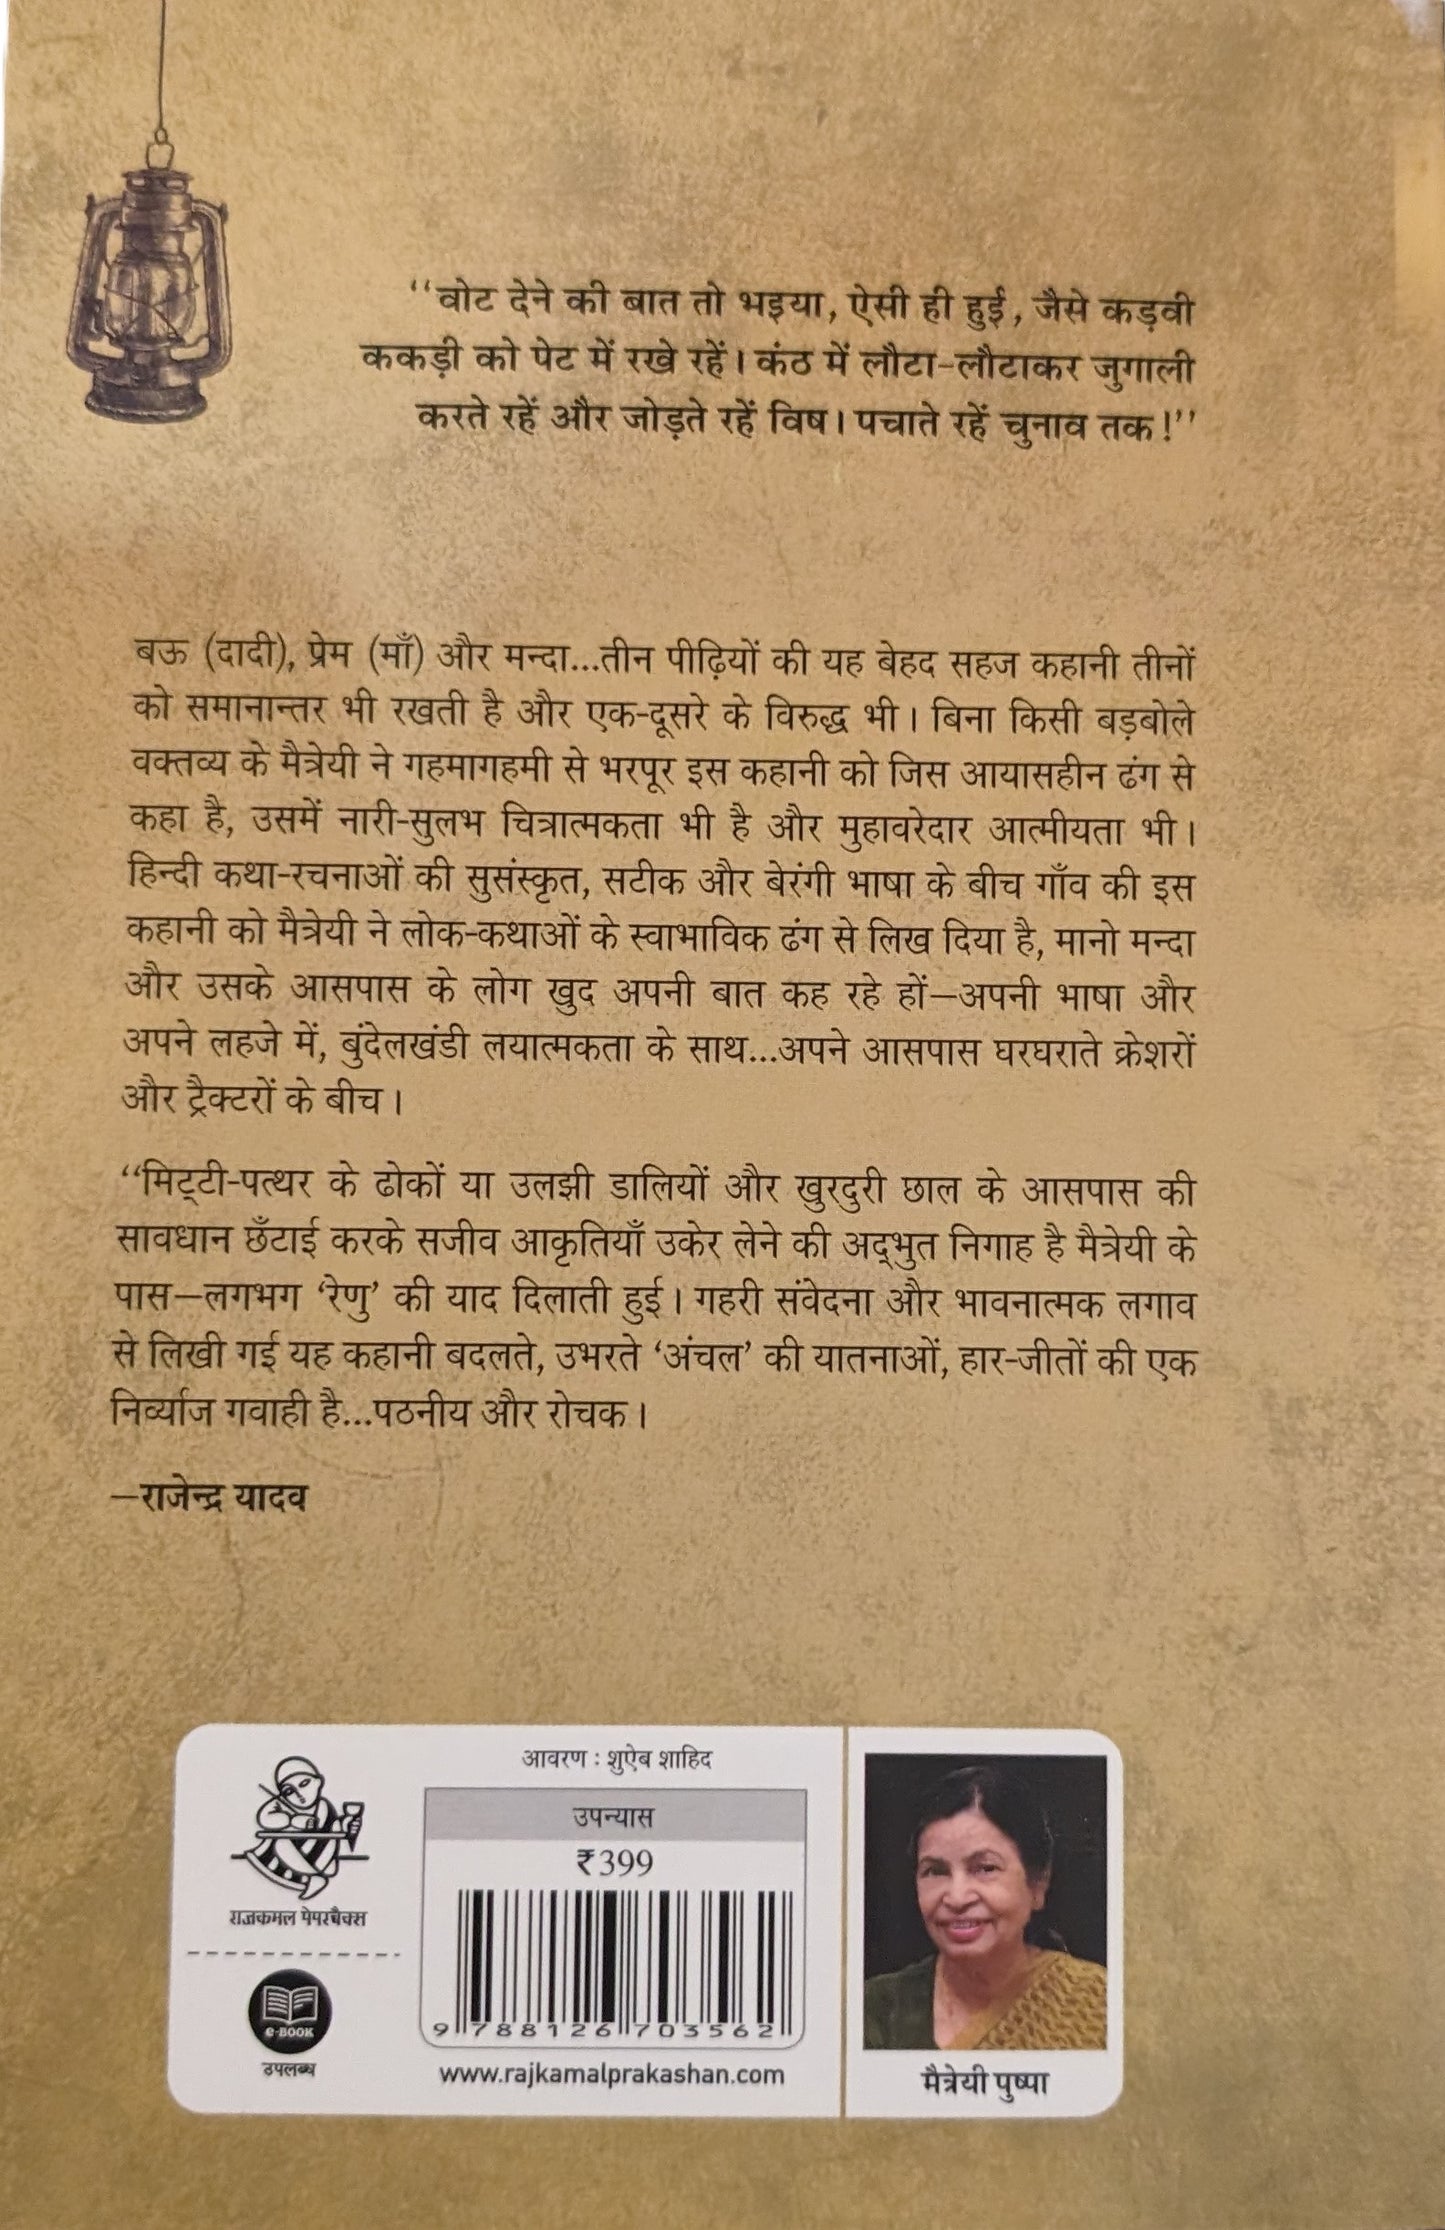 ‘‘वोट देने की बात तो भइया, ऐसी ही हुई, जैसे कड़वी
ककड़ी को पेट में रखे रहें। कंठ में लौटा-लौटाकर जुगाली
करते रहें और जोड़ते रहें विष। पचाते रहें चुनाव तक!’’
बऊ (दादी), प्रेम (माँ) और मन्दा...तीन पीढ़ियों की यह बेहद सहज कहानी तीनों
को समानान्तर भी रखती है और एक-दूसरे के विरुद्ध भी। बिना किसी बड़बोले
वक्तव्य के मैत्रेयी ने गहमागहमी से भरपूर इस कहानी को जिस आयासहीन ढंग से
कहा है, उसमें नारी-सुलभ चित्रात्मकता भी है और मुहावरेदार आत्मीयता भी।
हिन्दी कथा-रचनाओं की सुसंस्कृत, सटीक और बेरंगी भाषा के बीच गाँव की इस
कहानी को मैत्रेयी ने लोक-कथाओं के स्वाभाविक ढंग से लिख दिया है, मानो मन्दा
और उसके आसपास के लोग खुद अपनी बात कह रहे हों—अपनी भाषा और
अपने लहजे में, बुंदेलखंडी लयात्मकता के साथ...अपने आसपास घरघराते क्रेशरों
और ट्रैक्टरों के बीच।
‘‘मिट्टी-पत्थर के ढोकों या उलझी डालियों और खुरदुरी छाल के आसपास की
सावधान छँटाई करके सजीव आकृतियाँ उकेर लेने की अद्भुत निगाह है मैत्रेयी के
पास—लगभग ‘रेणु’ की याद दिलाती हुई। गहरी संवेदना और भावनात्मक लगाव
से लिखी गई यह कहानी बदलते, उभरते ‘अंचल’ की यातनाओं, हार-जीतों की एक
निर्व्याज गवाही है...पठनीय और रोचक।
—राजेन्द्र यादव
आवरण : शुऐब शाहिद
उपन्यास
₹399
राजकमल पेपरबैक्स
e-BOOK
उपलब्ध
9 788126 703562
www.rajkamalprakashan.com
मैत्रेयी पुष्पा